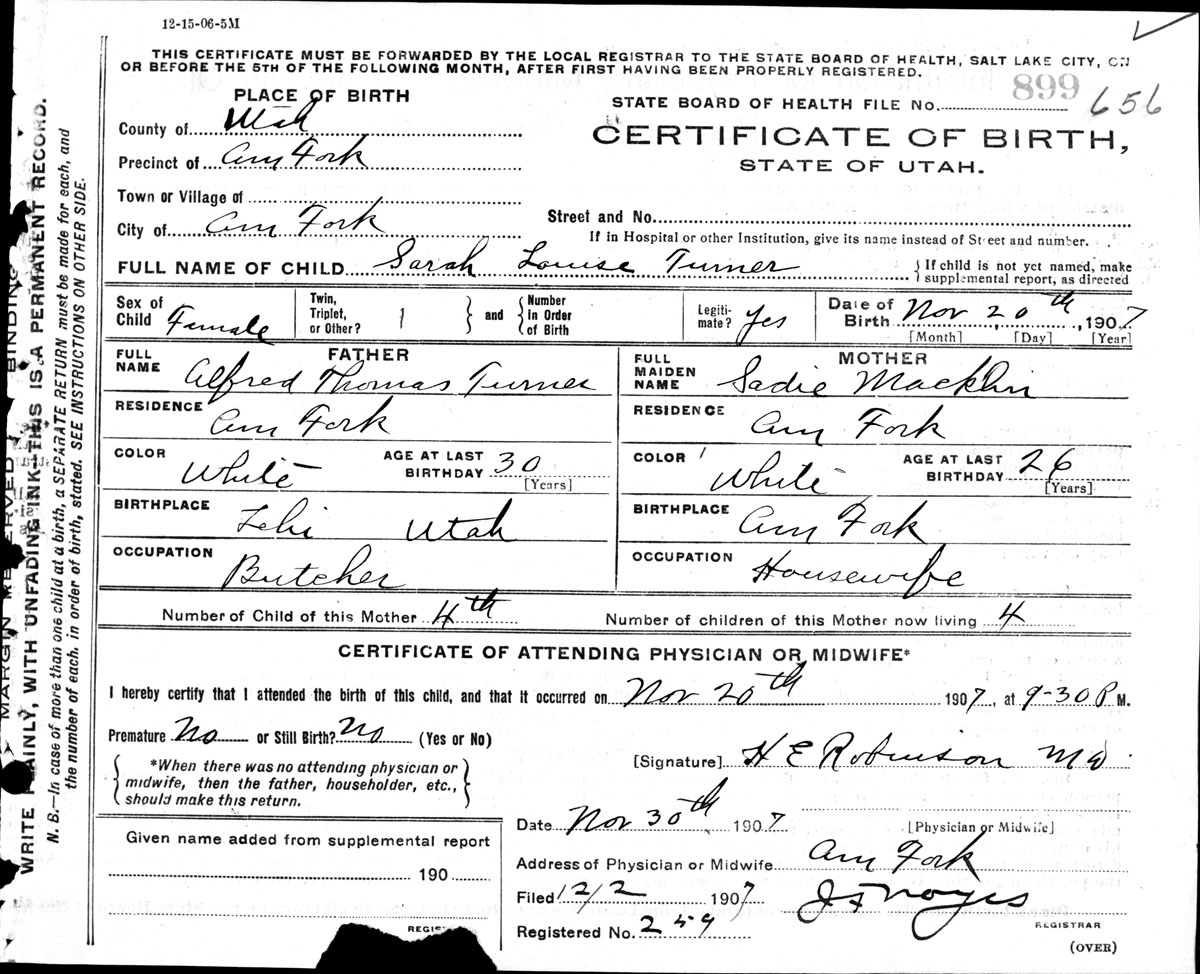 12-15-06-5M
THIS CERTIFICATE MUST BE FORWARDED BY THE LOCAL REGISTRAR TO THE STATE BOARD OF HEALTH, SALT LAKE CITY, ON
OR BEFORE THE 5TH OF THE FOLLOWING MONTH, AFTER FIRST HAVING BEEN PROPERLY REGISTERED.
PLACE OF BIRTH
STATE BOARD OF HEALTH FILE No. 899 656
County of Utah
CERTIFICATE OF BIRTH,
Precinct of Am Fork
STATE OF UTAH.
Town or Village of
City of Am Fork
Street and No.
If in Hospital or other Institution, give its name instead of Street and number.
FULL NAME OF CHILD Sarah Louise Turner { If child is not yet named, make supplemental report, as directed
Sex of Child Female Twin, Triplet, or Other? } and { Number in Order of Birth Legitimate? Yes Date of Birth Nov 20th, 1907
[Month] [Day] [Year]
FATHER MOTHER
FULL NAME Alfred Thomas Turner FULL MAIDEN NAME Sadie Macklin
RESIDENCE Am Fork RESIDENCE Am Fork
COLOR White AGE AT LAST BIRTHDAY 30 [Years] COLOR White AGE AT LAST BIRTHDAY 26 [Years]
BIRTHPLACE Lehi Utah BIRTHPLACE Am Fork
OCCUPATION Butcher OCCUPATION Housewife
Number of Child of this Mother 4th Number of children of this Mother now living 4
CERTIFICATE OF ATTENDING PHYSICIAN OR MIDWIFE*
I hereby certify that I attended the birth of this child, and that it occurred on Nov 20th 1907, at 9-30 P M.
Premature No or Still Birth? No (Yes or No)
[Signature] H E Robinson MD
*When there was no attending physician or
midwife, then the father, householder, etc.,
should make this return.
Date Nov 30th 1907 [Physician or Midwife]
Given name added from supplemental report
Address of Physician or Midwife Am Fork
190
Filed 12/2 1907 J F Noyes
REGISTRAR
Registered No. 259
(OVER)
MARGIN RESERVED BINDING
WRITE PLAINLY, WITH UNFADING INK—THIS IS A PERMANENT RECORD.
N. B.—In case of more than one child at a birth, a SEPARATE RETURN must be made for each, and
the number of each, in order of birth, stated. SEE INSTRUCTIONS ON OTHER SIDE.